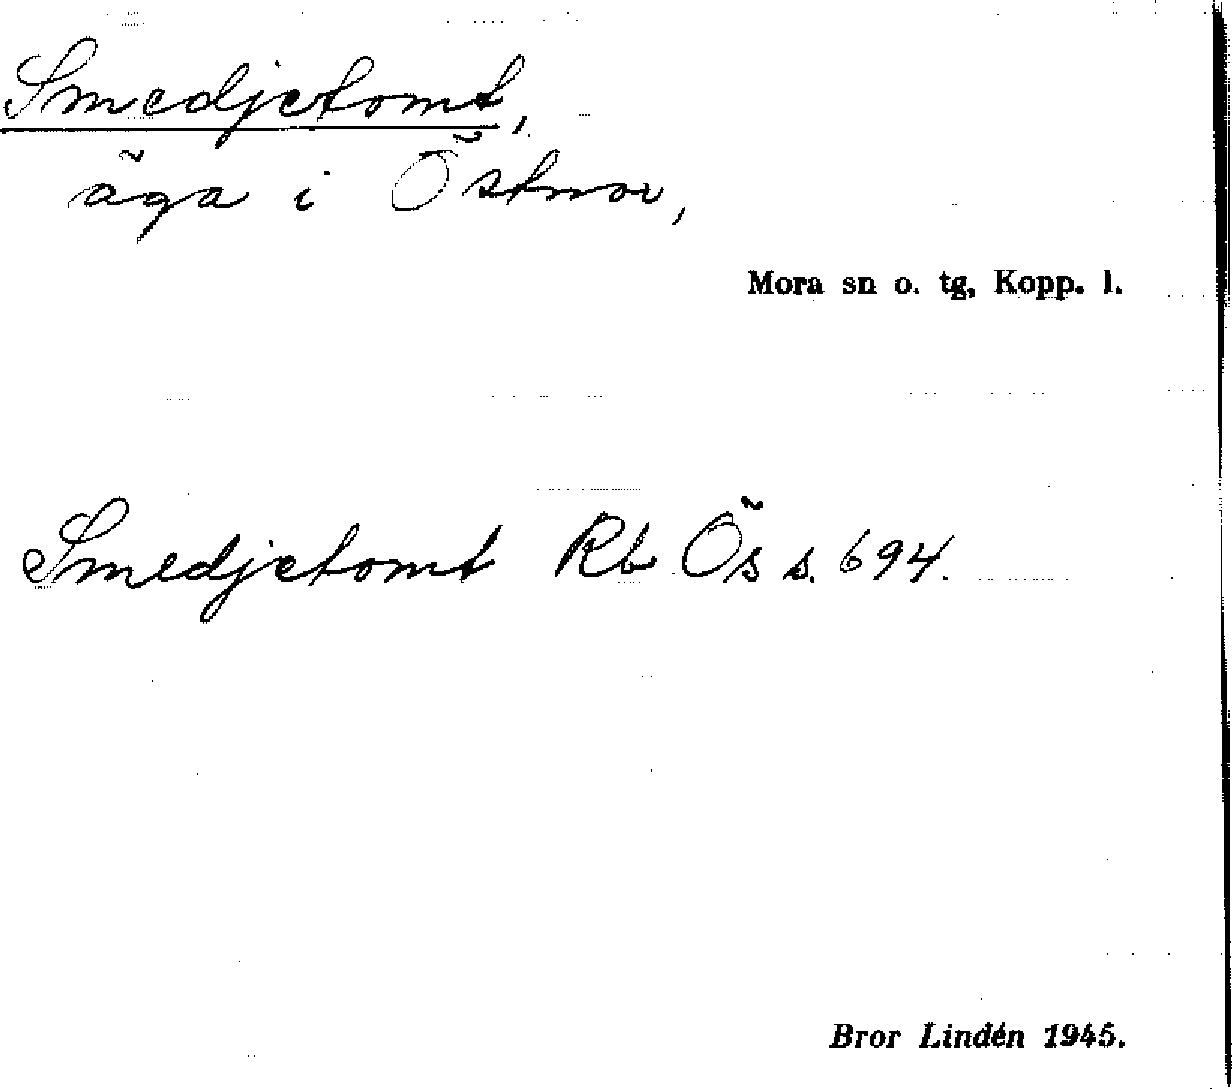 Smedjetomt,
äga i Östnor,
Mora sn o. tg, Kopp. l.
Smedjetomt Rb Ös s. 694.
Bror Lindén 1945.